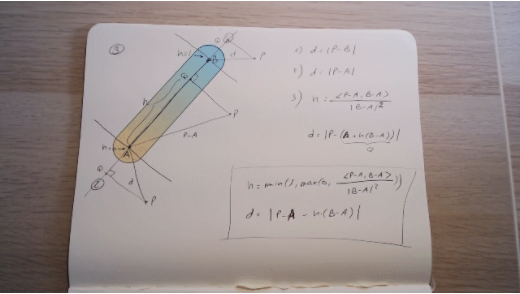 ③
h=1
B
d
P
Q
h
P
P-A
h=0
A
Q
d
②
P
1) d = |P-B|
2) d = |P-A|
3) h = <P-A, B-A> / |B-A|²
d = |P-(A+h(B-A))|
Q
h = min(1, max(0, <P-A, B-A> / |B-A|²))
d = |P-A - h·(B-A)|